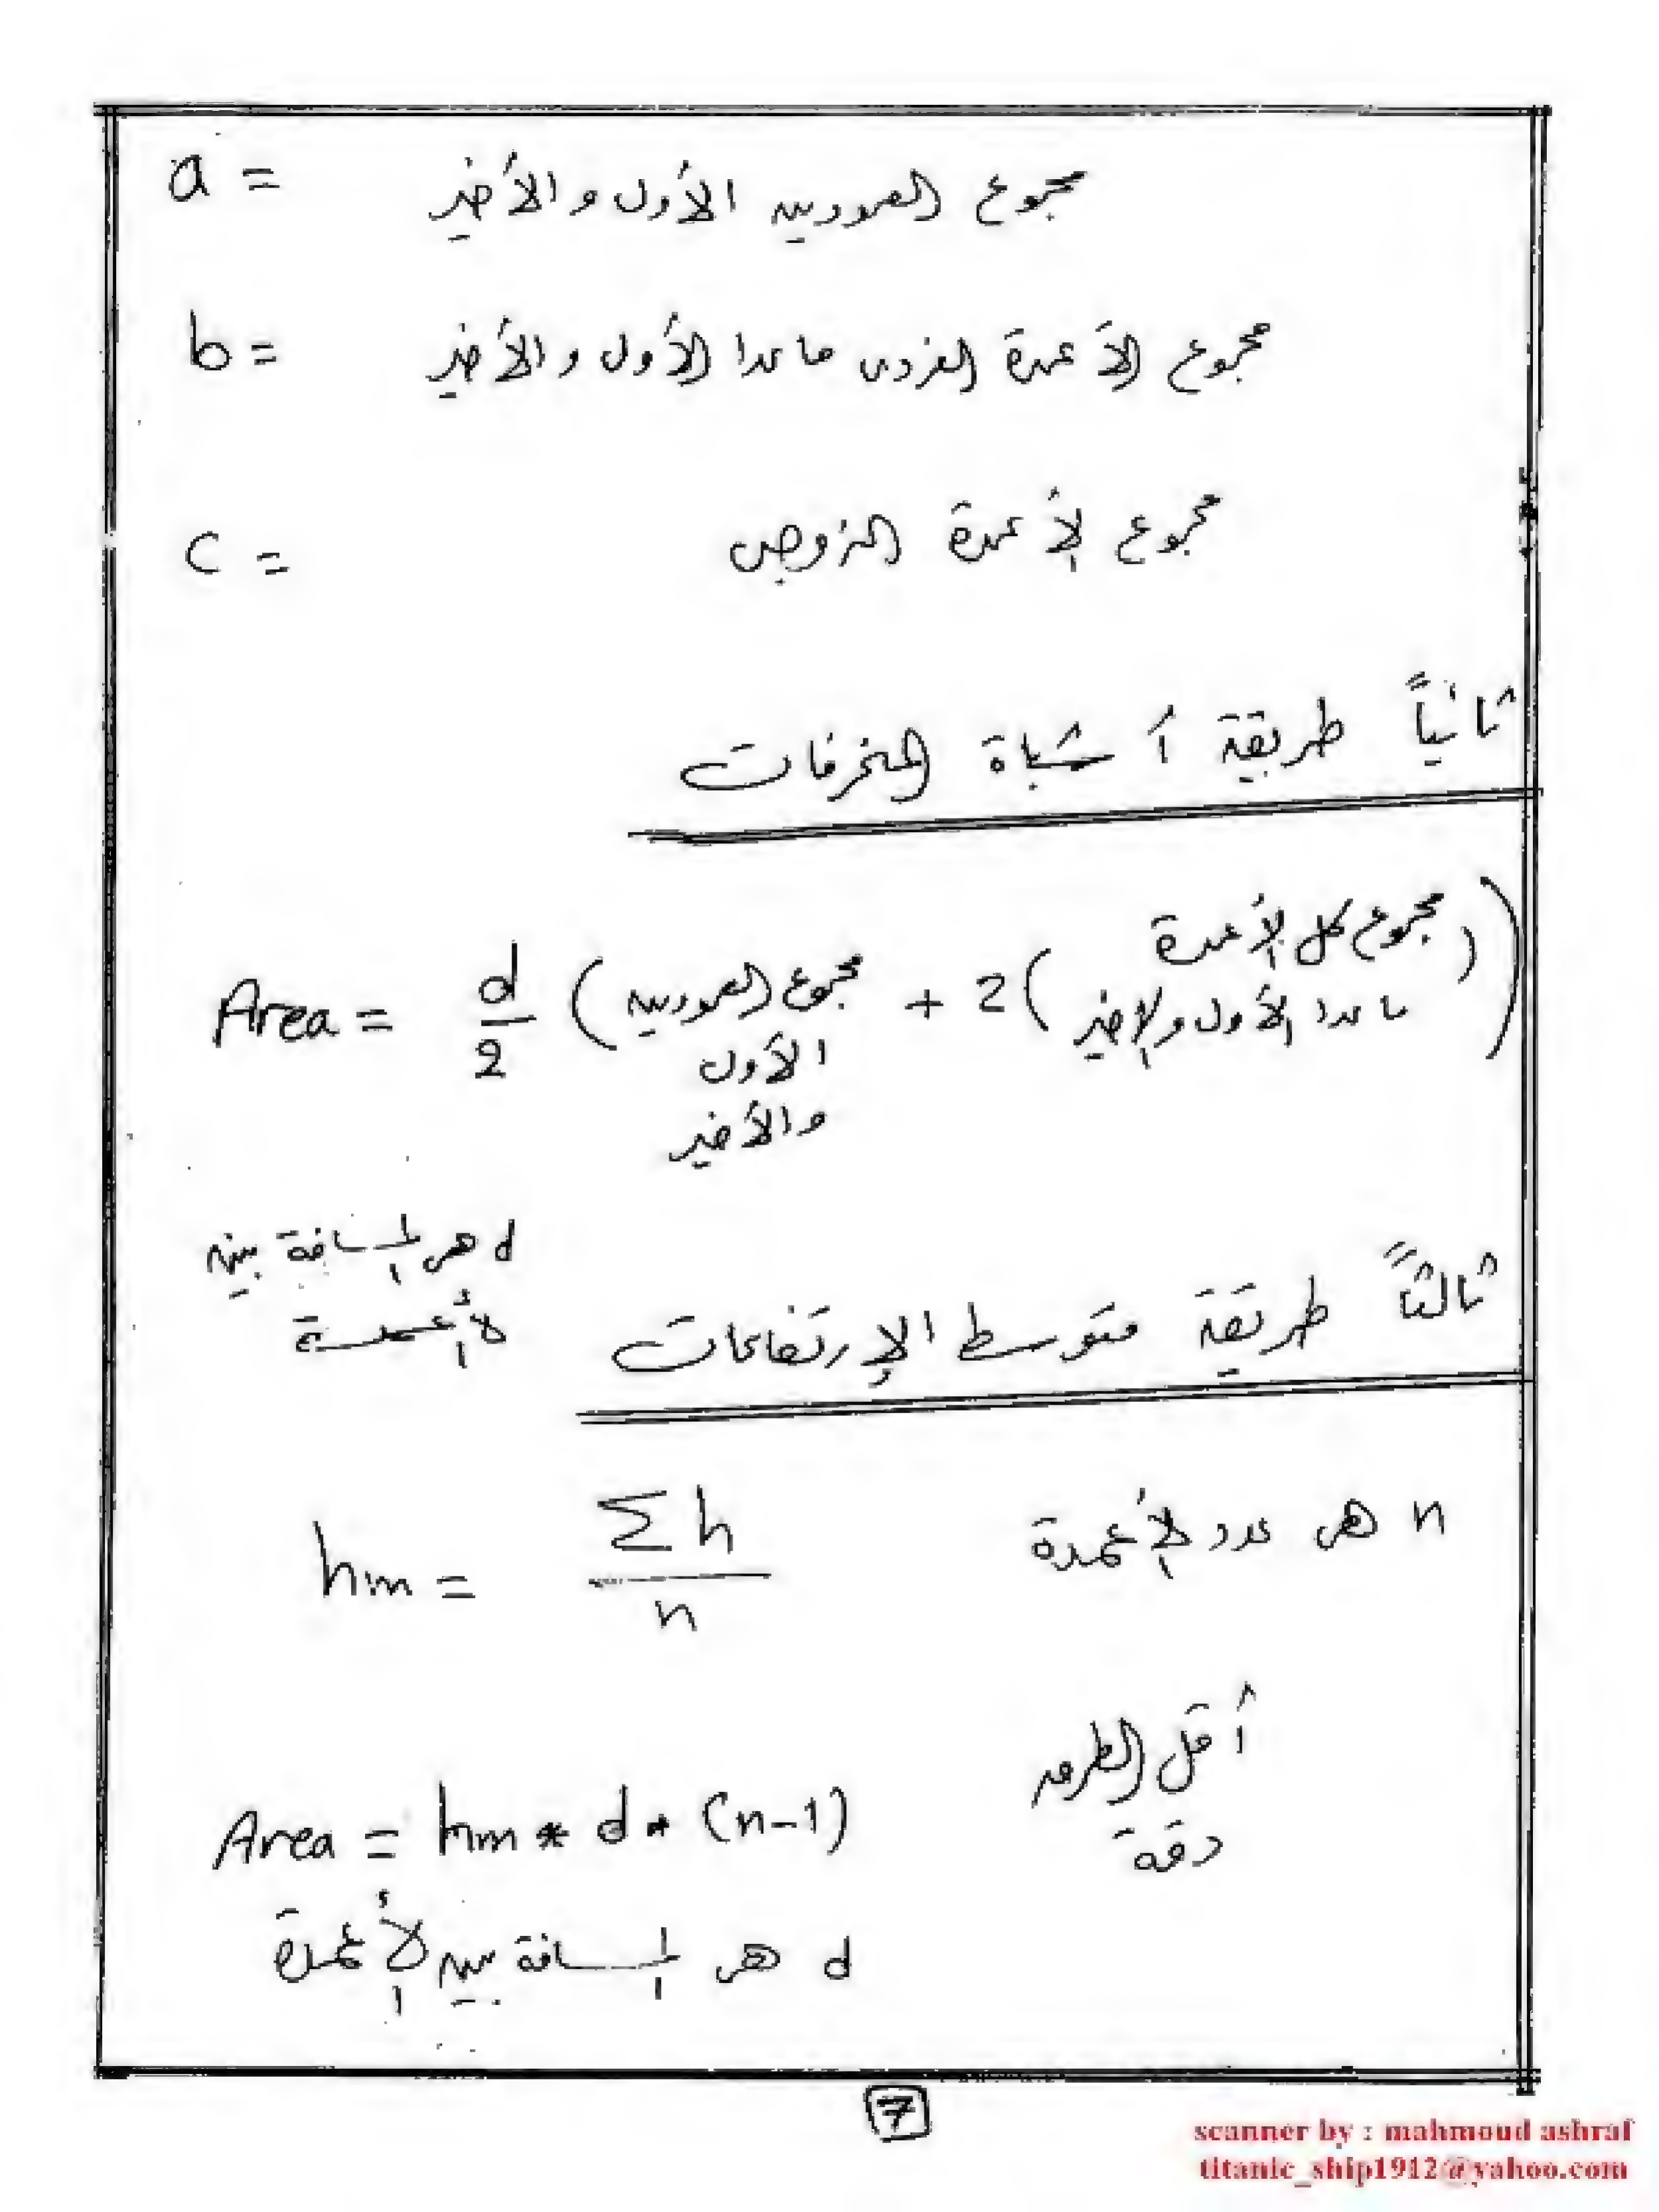 a = مجموع العمودين الأول والأخير
b = مجموع الأعمدة الفردى ما عدا الأول والأخير
c = مجموع الأعمدة الزوجى
ثانياً طريقة أشباة المنحرفات
Area = d/2 (مجموع العمودين الأول والأخير + 2(مجموع كل الأعمدة ما عدا الأول والأخير))
d هى المسافة بين
الأعمدة
ثالثاً طريقة متوسط الإرتفاعات
hm = Σh / n
n هى عدد الأعمدة
أقل الطرق
دقة
Area = hm * d * (n-1)
d هى المسافة بين الأعمدة
7
scanner by : mahmoud ashraf
titanic_ship1912@yahoo.com